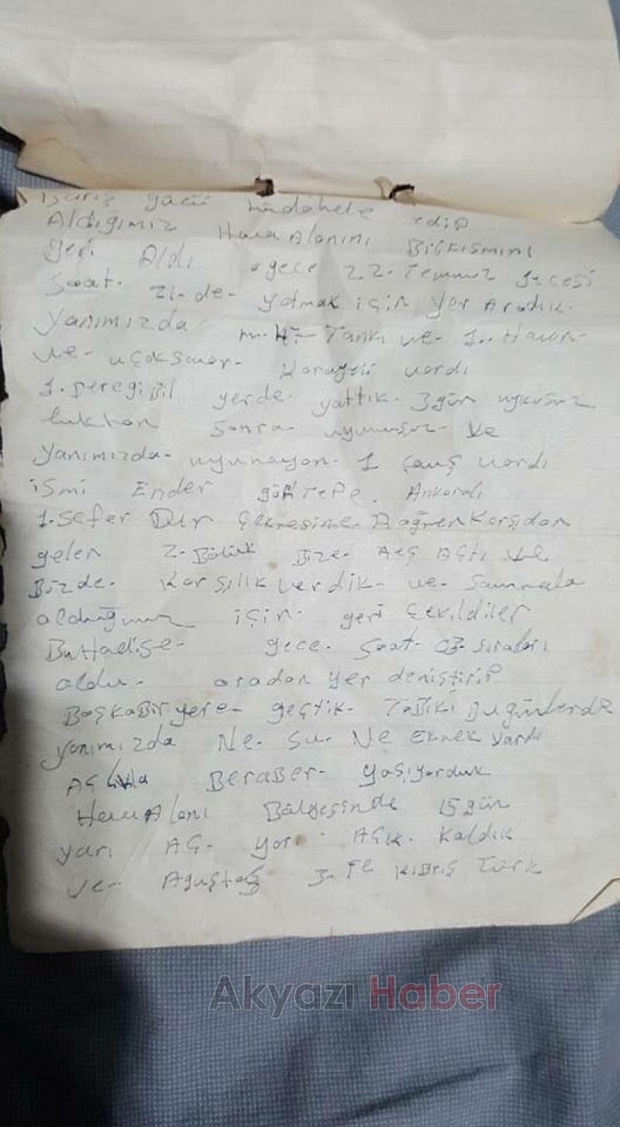 Barış gücü müdehele edip
Aldığımız Hava Alanını Bir kısmını
geri Aldı o gece 22. Temmuz gecesi
Saat. 21-de- yatmak için yer Aradık.
yanımızda m. 47- Tankı ve- 1.. Havan
ve- uçaksavar- vardı
1. Deregibil yerde- yattık- 3 gün uykusuz
luktan sonra- uyumuşuz- ve
yanımızda- uyumayan- 1 çavuş vardı
ismi Ender göktepe. Ankaralı
1. Sefer Dur Karşıdan
gelen 2- Bölük Bize- Aeş Açtı ve
Bizde- karşılık verdik- ve-
alduğumuz için- geri çekildiler
Bu Hadise- gece. Saat- 03- sıraları
oldu- oradan yer deniştirip
Başka Bir yere- geçtik- Tabiki Bu günlerde
yanımızda Ne- Su- Ne Ekmek vardı
Açlıkla BeraBer- yaşıyorduk
Hava Alanı Bölgesinde 15 gün
yarı AÇ- yarı AÇık- kaldık
ve- Ağustos 3- Te kıBrıs Türk
Akyazı Haber